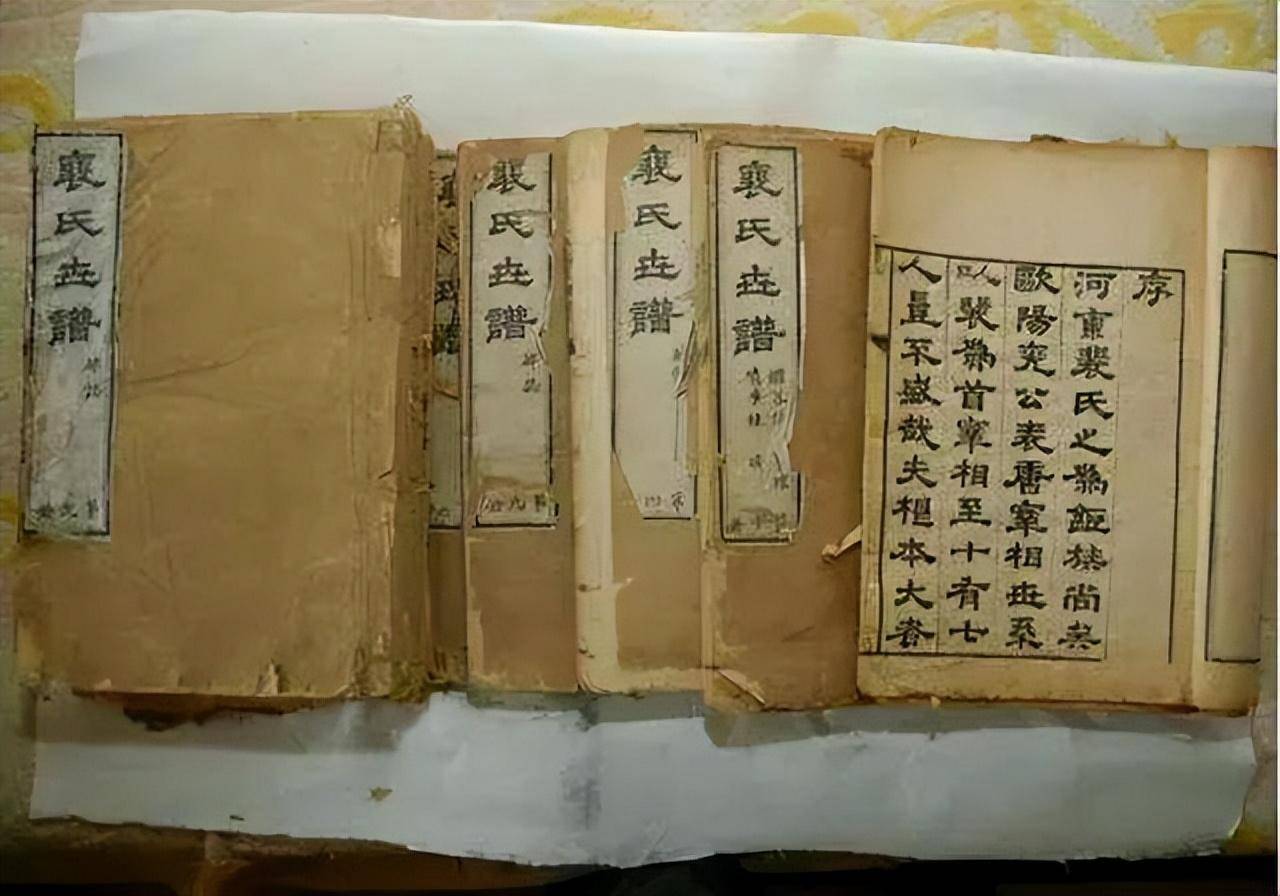 序
河東裴氏之為鉅族尚矣
歐陽兗公表唐宰相世系
以裴為首宰相至十有七
人豈不盛哉夫樞本大者
裴氏世譜
裴氏世譜
裴氏世譜
裴氏世譜